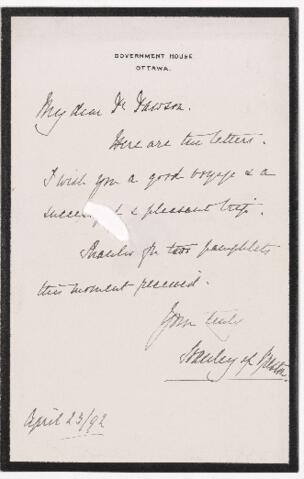 GOVERNMENT HOUSE
OTTAWA.
My dear Dr Dawson.
Here are ten letters.
I wish you a good voyage & a
success & pleasant trip.
Thanks for two pamphlets
this moment received.
Yours truly
Stanley of Preston.
April 23/92